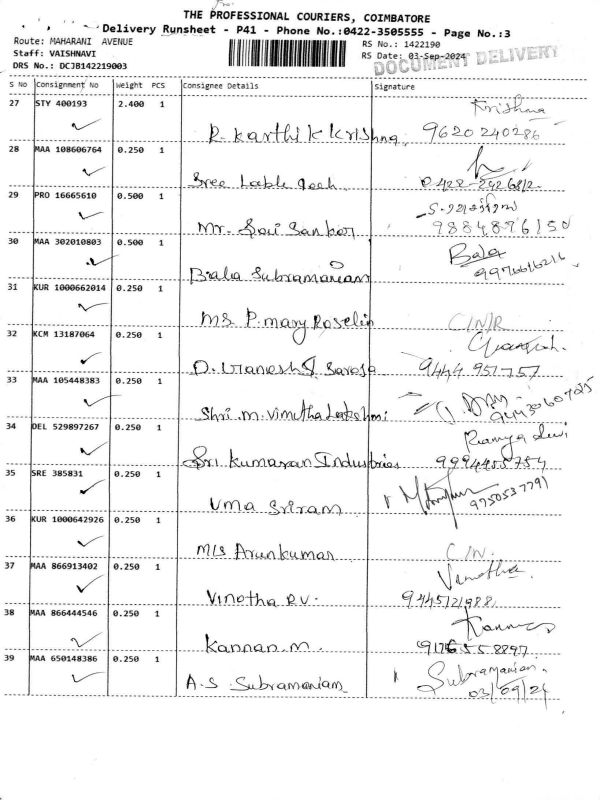 THE PROFESSIONAL COURIERS, COIMBATORE
Delivery Runsheet - P41 - Phone No.:0422-3505555 - Page No.:3
Route: MAHARANI AVENUE
RS No.: 1422190
Staff: VAISHNAVI
RS Date: 03-Sep-2024
DRS No.: DCJB142219003
DOCUMENT DELIVERY
S No Consignment No Weight PCS Consignee Details Signature
27 STY 400193 2.400 1
Krishna
R. Karthik Krishna. 9620240286
28 MAA 108606764 0.250 1
Sree 0422-2926812
29 PRO 16665610 0.500 1
Mr. Sai Sankar 9884876150
30 MAA 302010803 0.500 1
Bala
Bala Subramaniam 9976616216
31 KUR 1000662014 0.250 1
MS P. mary Roselin C/N/R
32 KCM 13187064 0.250 1
D. 9444 951757
33 MAA 105448383 0.250 1
Shri. m. Vimutha Lakshmi
34 DEL 529897267 0.250 1
Ramya Devi
Sri. Kumaran Industries 9994455754
35 SRE 385831 0.250 1
Uma Sriram 9750537791
36 KUR 1000642926 0.250 1
M/s Arunkumar C/N.
37 MAA 866913402 0.250 1
Vinotha
Vinotha R.V. 9445121988
38 MAA 866444546 0.250 1
Kannan
Kannan. m. 9176558897
39 MAA 650148386 0.250 1
Subramanian.
A.S. Subramaniam 03/09/24